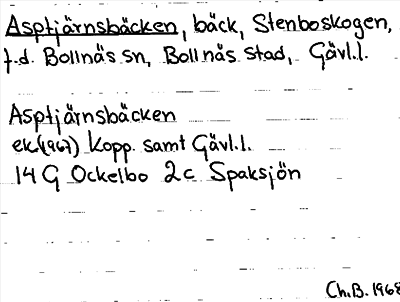 Asptjärnsbäcken, bäck, Stenboskogen,
f.d. Bollnäs sn, Bollnäs stad, Gävl.l.
Asptjärnsbäcken
ek(1967) Kopp. samt Gävl.l.
14 G Ockelbo 2c Spaksjön
Ch.B. 1968